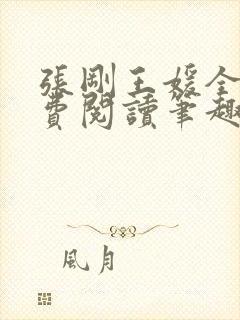 張剛王媛全
費閱讀筆趣
風月